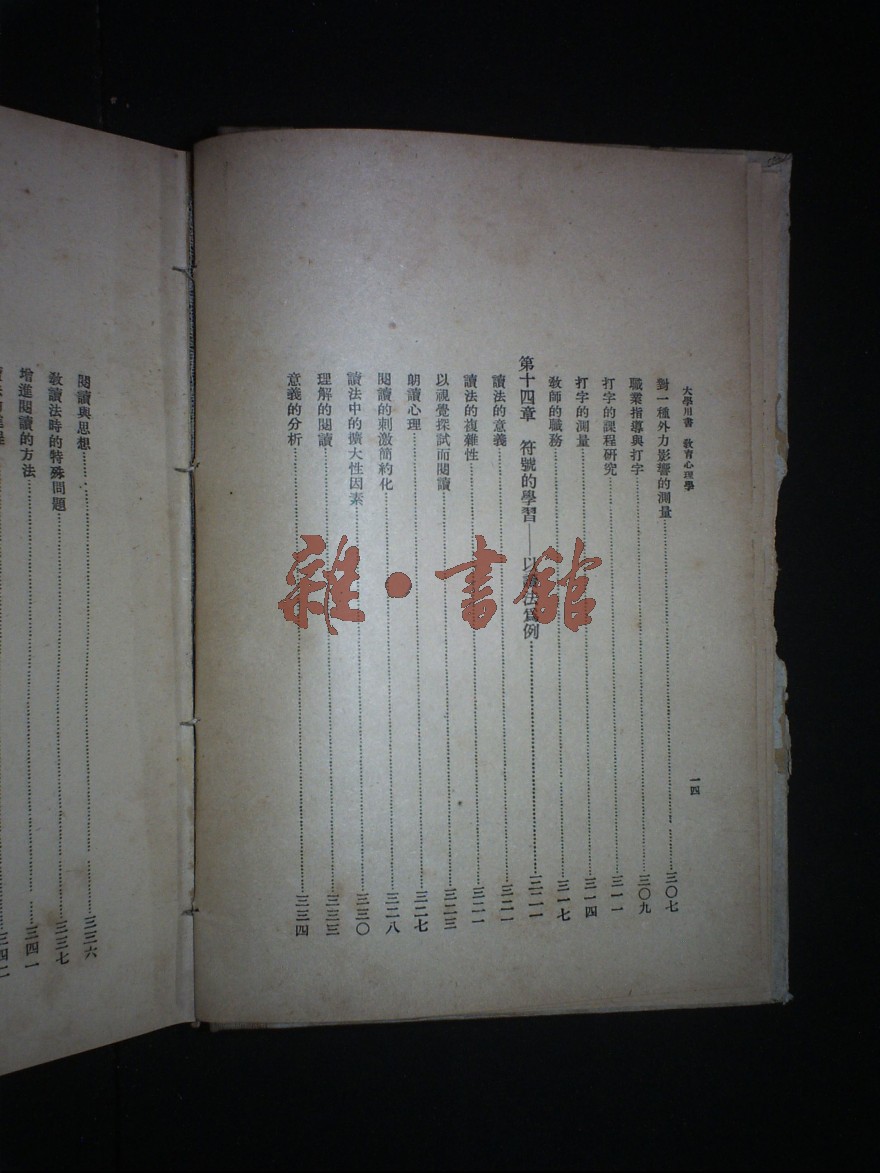 大學用書 教育心理學
一四
對一種外力影響的測量……三〇七
職業指導與打字……三〇九
打字的課程研究……三一一
打字的測量……三一四
教師的職務……三一七
第十四章 符號的學習——以讀法爲例……三二一
讀法的意義……三二一
讀法的複雜性……三二一
以視覺探試而閱讀……三二三
朗讀心理……三二七
閱讀的刺激簡約化……三二八
讀法中的擴大性因素……三三〇
理解的閱讀……三三三
意義的分析……三三四
閱讀與思想……三三六
教讀法時的特殊問題……三三七
增進閱讀的方法……三四一
三四二
雜·書館